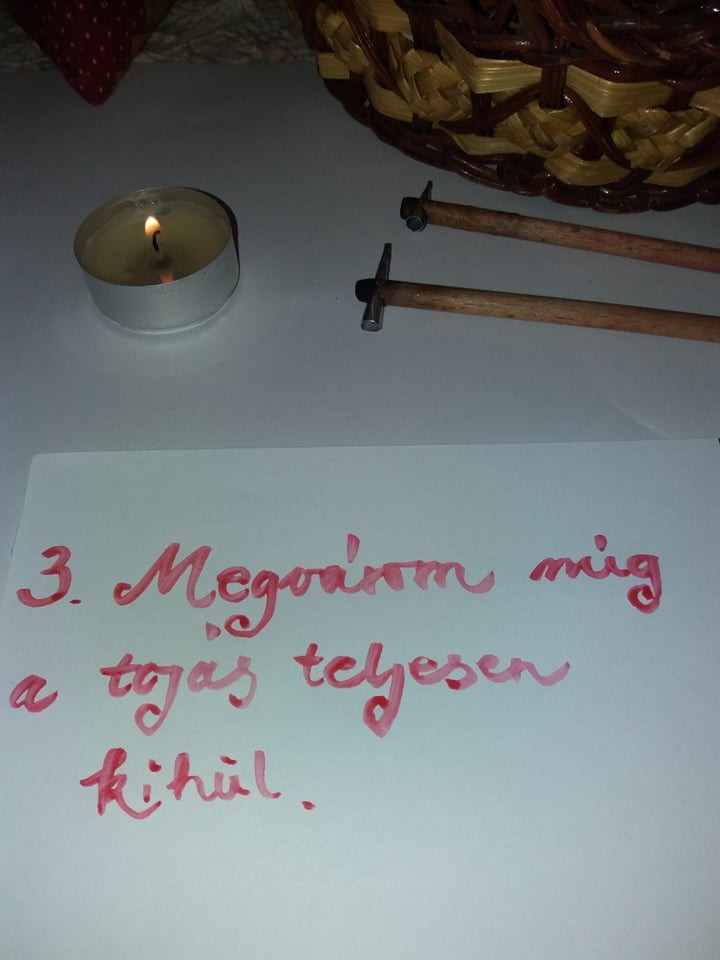 3. Megvárom míg
a tojás teljesen
kihül.